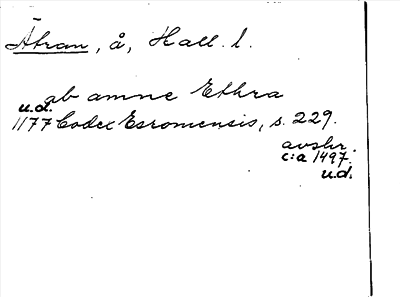 Ätran, å, Hall. l.
ab amne Ethra
u.d.
1177 Codex Esromensis, s. 229.
avskr.
c:a 1497.
u.d.